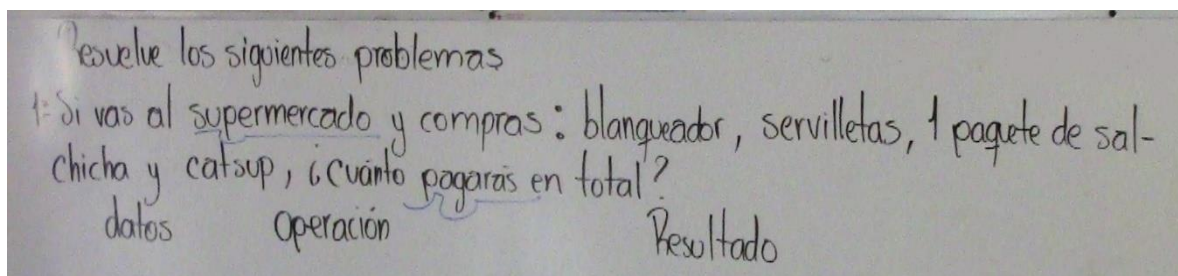 Resuelve los siguientes problemas
1= Si vas al supermercado y compras: blanqueador, servilletas, 1 paquete de sal-
chicha y catsup, ¿cuánto pagarás en total?
datos operación Resultado